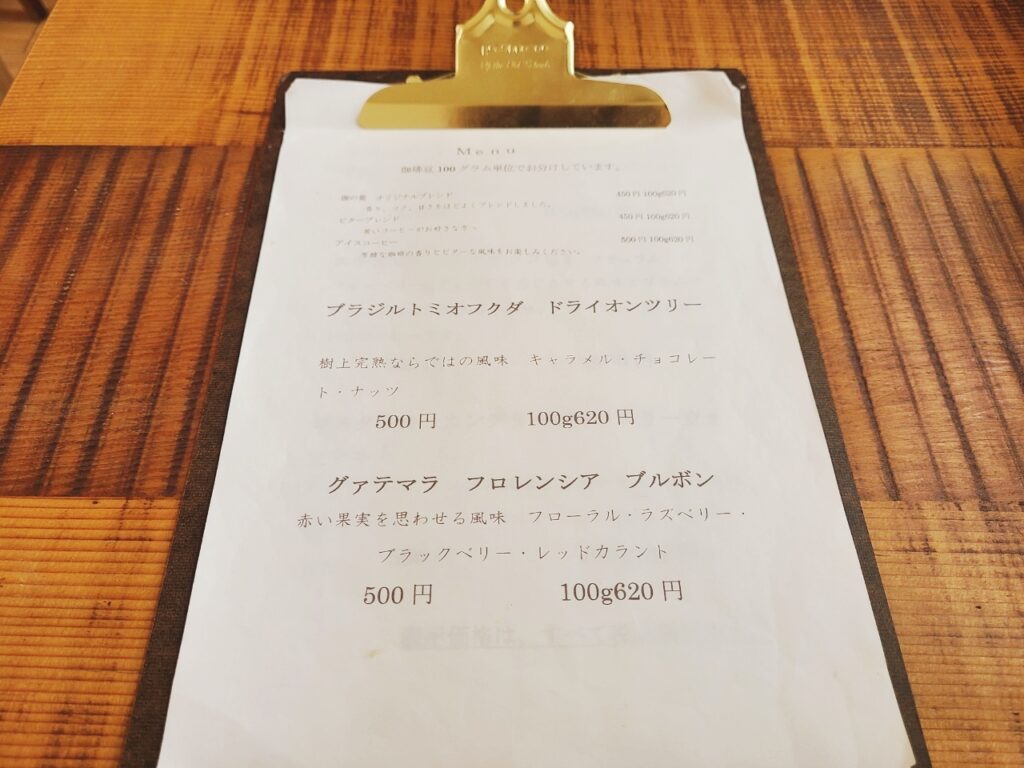 Menu
珈琲豆100グラム単位でお分けしています。
オリジナルブレンド 450円 100g620円
香り、コク、甘さをほどよくブレンドしました。
ビターブレンド 450円 100g620円
コーヒーがお好きな方へ
アイスコーヒー 500円 100g620円
芳醇な珈琲の香りとビターな風味をお楽しみください。
ブラジルトミオフクダ ドライオンツリー
樹上完熟ならではの風味 キャラメル・チョコレー
ト・ナッツ
500円 100g620円
グァテマラ フロレンシア ブルボン
赤い果実を思わせる風味 フローラル・ラズベリー・
ブラックベリー・レッドカラント
500円 100g620円